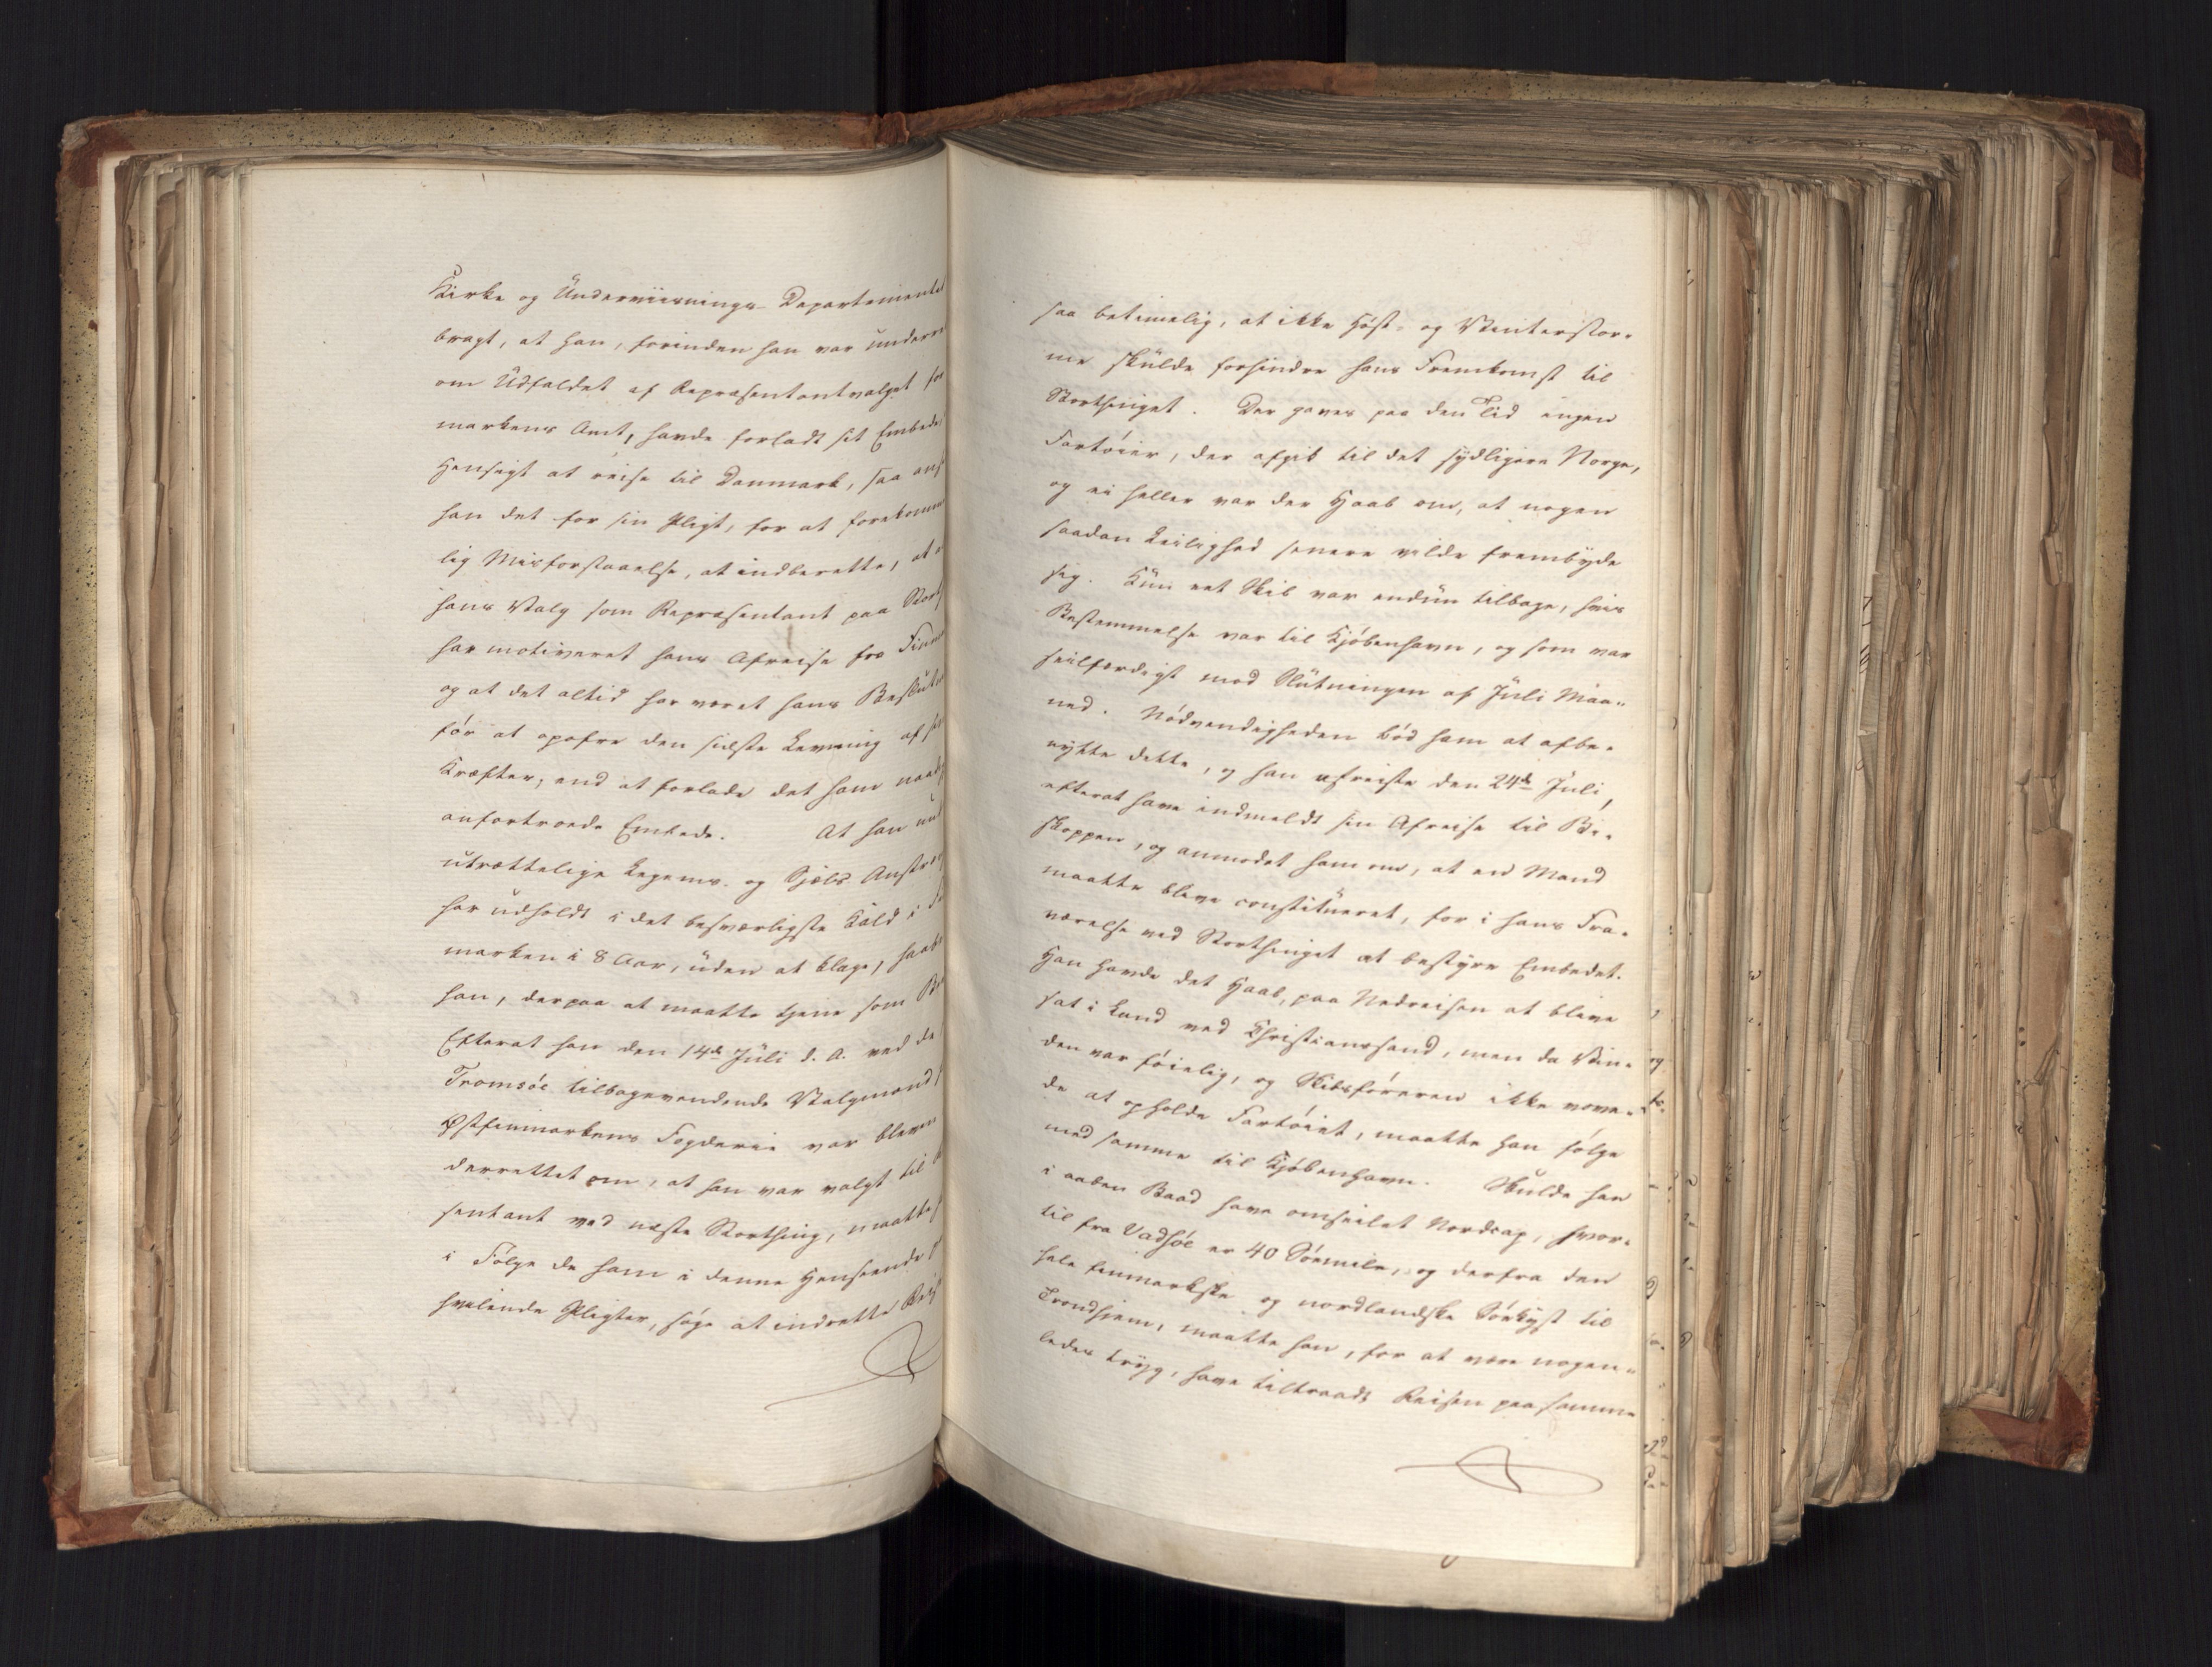 Kirke og Underviisnings-Departementet
bragt, at han, forinden han var underre
om Udfaldet af Repræsentantvalget for
markens Amt, havde forladt sit Embede
Hensigt at reise til Danmark, saa ans
han det for sin Pligt, for at forekomme
lig Misforstaaelse, at indberette, at
hans Valg som Repræsentant paa Storth
har motiveret hans Afreise fra Finm
og at det altid har været hans Beslutn
før at opofre den sidste Levning af si
Kræfter, end at forlade det ham naad
anfortroede Embede. At han
utrættelige Legems- og Sjæls Anstr
har udholdt i det besværligste Kald i
marken i 8 Aar, uden at klage, haabe
han, derpaa at maatte tjene som Be
Efterat han den 14de Juli d. A. ved de
Tromsöe tilbagevendende Valgmænd
Østfinmarkens Fogderie var bleven
derrettet om, at han var valgt til
sentant ved næste Storthing, maatte
i Følge de ham i denne Henseende
hvilende Pligter, søge at indrette Reis
saa betimelig, at ikke Høst- og Vinterstor-
me skulde forhindre hans Fremkomst til
Storthinget. Der gaves paa den Tid ingen
Fartøier, der afgik til det sydligere Norge,
og ei heller var der Haab om, at nogen
saadan Leilighed senere vilde frembyde
sig. Kun eet Skib var endnu tilbage, hvis
Bestemmelse var til Kjøbenhavn, og som var
seilfærdigt mod Slutningen af Juli Maa-
ned. Nødvendigheden bød ham at afbe-
nytte dette, og han afreiste den 24de Juli,
efterat have indmeldt sin Afreise til Bi-
skoppen, og anmodet ham om, at en Mand
maatte blive constitueret, for i hans Fra-
værelse ved Storthinget at bestyre Embedet.
Han havde det Haab, paa Nedreisen at blive
sat i Land ved Christianssand, men da Vin-
den var føielig, og Skibsføreren ikke vove-
de at opholde Fartøiet, maatte han følge
med samme til Kjøbenhavn. Skulde han
i aaben Baad have omseilet Nordcap, hvor-
til fra Vadsöe er 40 Søemile, og derfra den
hele finmarkske og nordlandske Søekyst til
Trondhjem, maatte han, for at være nogen-
ledes tryg, have tiltraadt Reisen paa samme